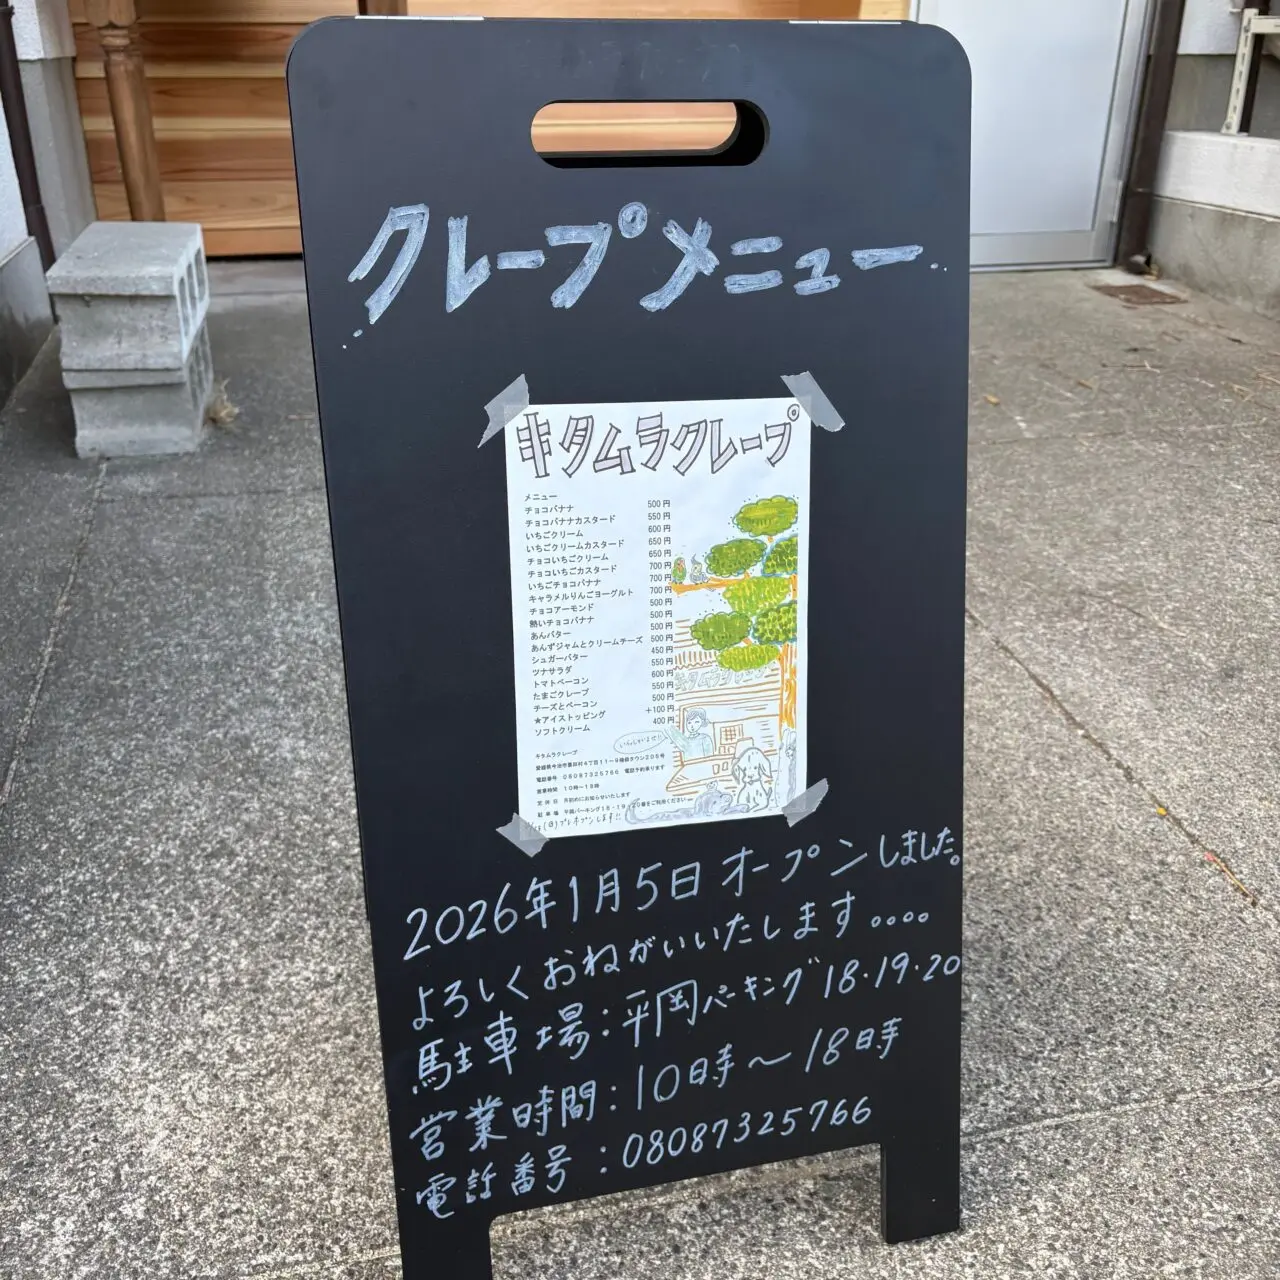 クレープメニュー
キタムラクレープ
メニュー
チョコバナナ 500円
チョコバナナカスタード 550円
いちごクリーム 600円
いちごクリームカスタード 650円
チョコいちごクリーム 650円
チョコいちごカスタード 700円
いちごチョコバナナ 700円
キャラメルりんごヨーグルト 700円
チョコアーモンド 500円
熱いチョコバナナ 500円
あんバター 500円
あんずジャムとクリームチーズ 500円
シュガーバター 450円
ツナサラダ 550円
トマトベーコン 600円
たまごクレープ 550円
チーズとベーコン 500円
★アイストッピング +100円
ソフトクリーム 400円
キタムラクレープ
いらっしゃいませ!!
キタムラクレープ
愛媛県今治市 4丁目11-9 タウン205号
電話番号 08087325766 電話予約承ります
営業時間 10時~18時
定休日 月初めにお知らせいたします
駐車場 平岡パーキング18・19・20番をご利用ください
(日)プレオープンします!!
2026年1月5日オープンしました。
よろしくおねがいいたします。。。。
駐車場:平岡パーキング18・19・20
営業時間:10時~18時
電話番号:08087325766